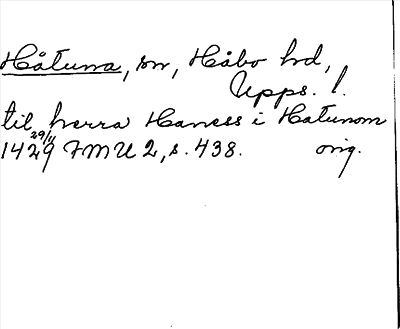 Håtuna, sn, Håbo hd,
Upps. l.
til herra Haness i Hatunom
29/11
1429 FMU 2, s. 438. orig.